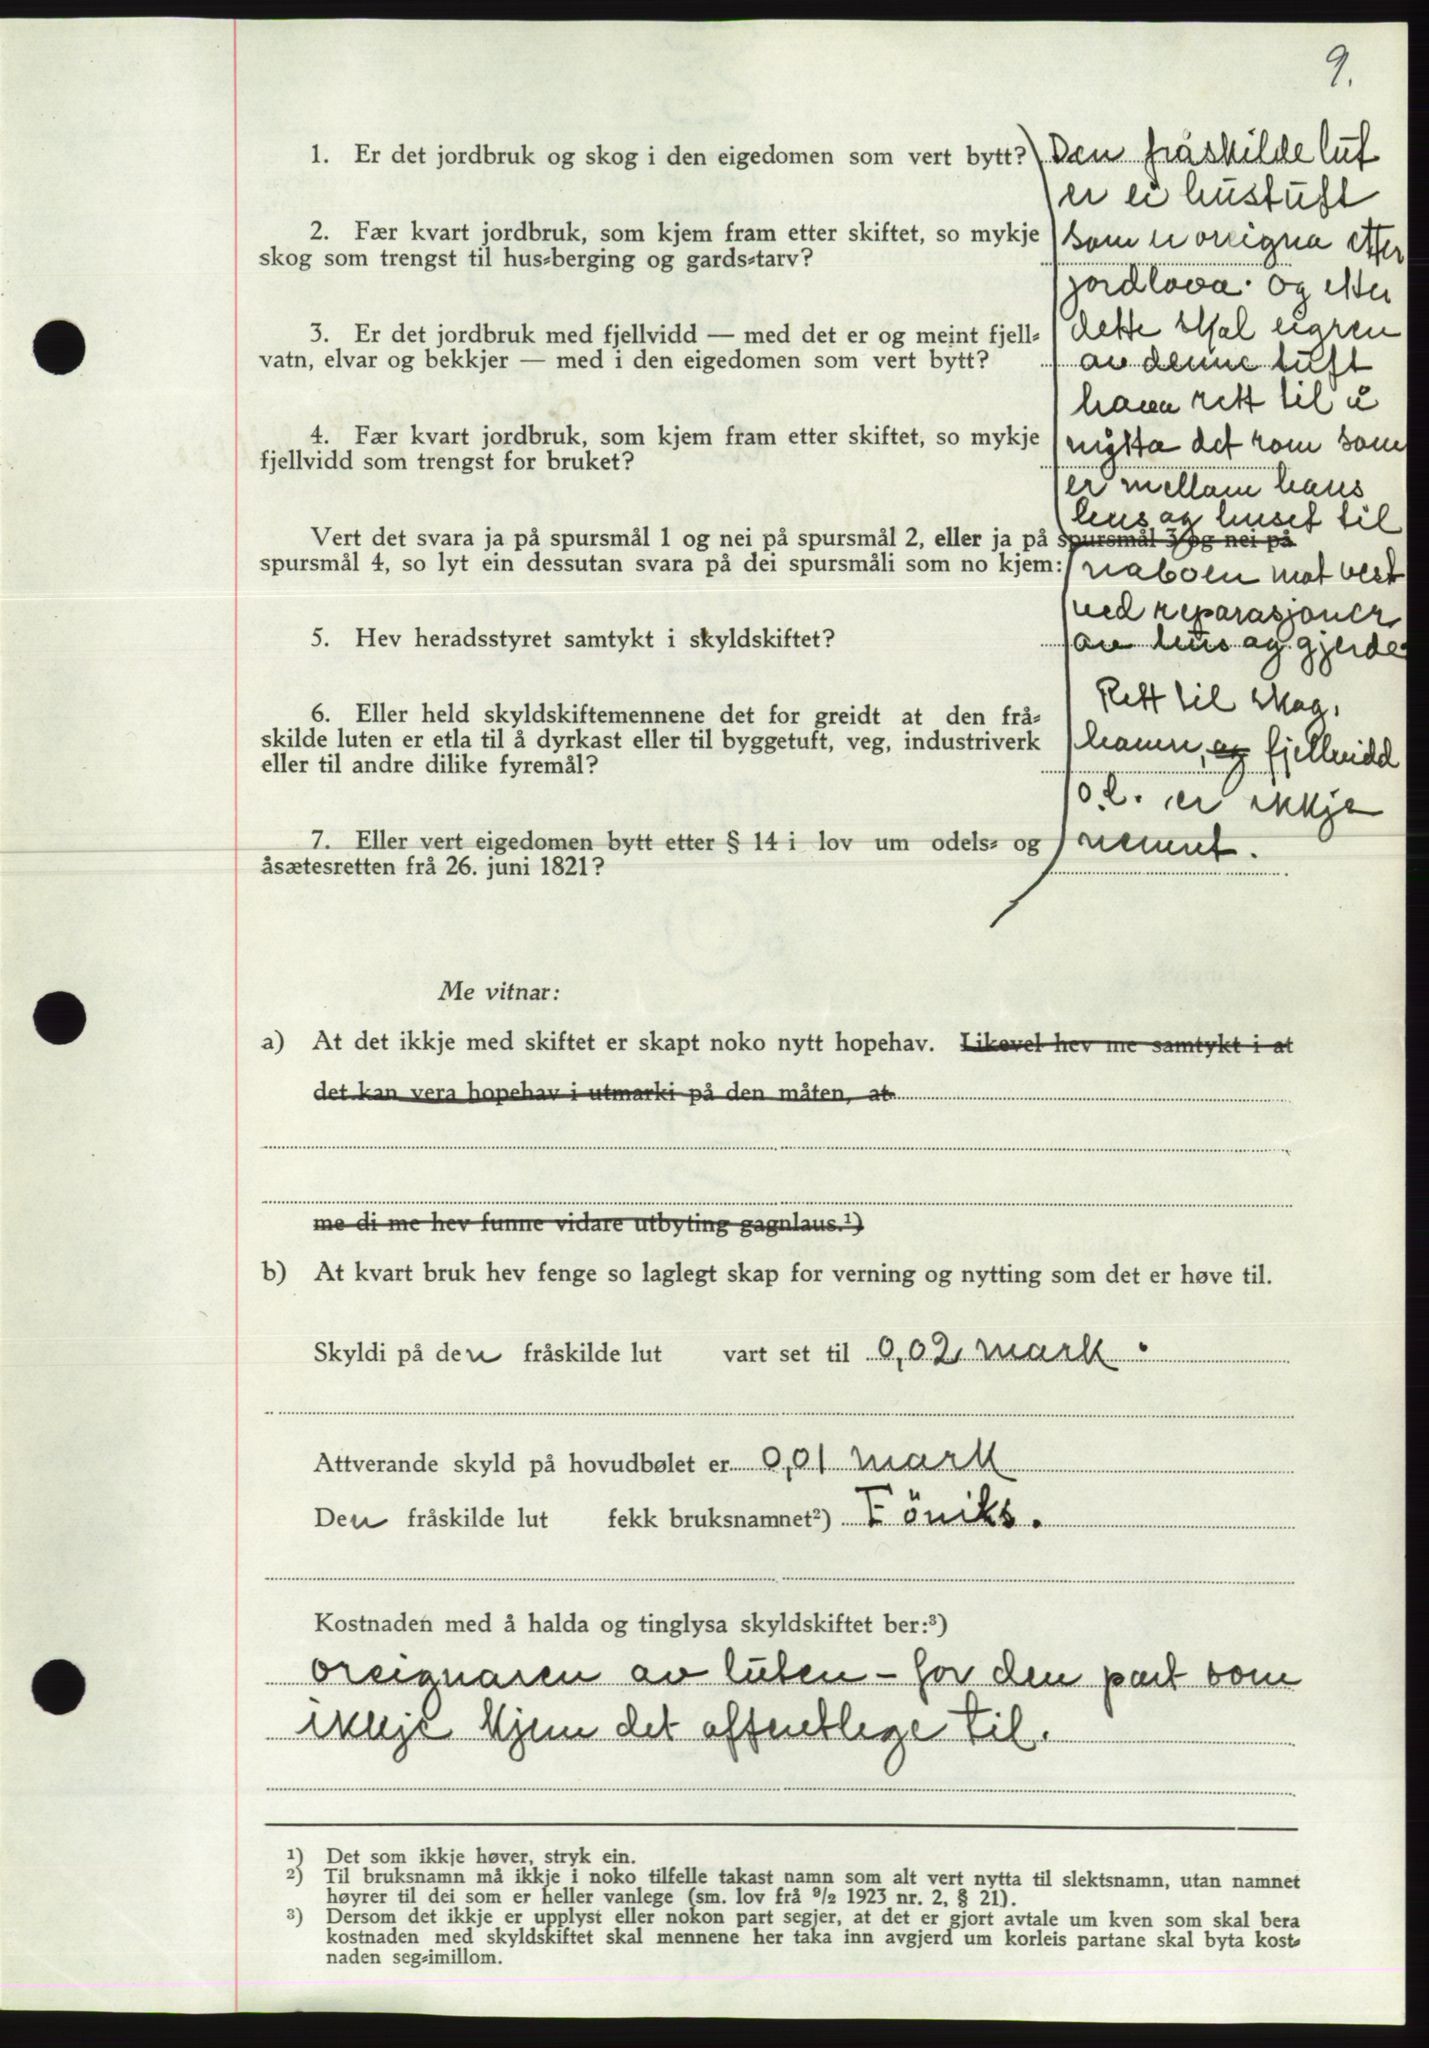 9.
1. Er det jordbruk og skog i den eigedomen som vert bytt?
Den fråskilde lut
er ei hustuft
2. Fær kvart jordbruk, som kjem fram etter skiftet, so mykje
som er oreigna etter
skog som trengst til hus-berging og gards-tarv?
jordlova. Og etter
3. Er det jordbruk med fjellvidd — med det er og meint fjell-
dette skal eigren
vatn, elvar og bekkjer — med i den eigedomen som vert bytt?
av denne tuft
hava rett til å
4. Fær kvart jordbruk, som kjem fram etter skiftet, so mykje
nytta det rom som
fjellvidd som trengst for bruket?
er mellom hans
hus og huset til
Vert det svara ja på spursmål 1 og nei på spursmål 2, eller ja på spursmål 3 og nei på
spursmål 4, so lyt ein dessutan svara på dei spursmåli som no kjem:
naboen mot vest
ved reparasjoner
5. Hev heradsstyret samtykt i skyldskiftet?
av hus og gjerde.
Rett til skog,
6. Eller held skyldskiftemennene det for greidt at den frå-
skilde luten er etla til å dyrkast eller til byggetuft, veg, industriverk
hamn, og fjellvidd
eller til andre dilike fyremål?
o.l. er ikkje
7. Eller vert eigedomen bytt etter § 14 i lov um odels- og
nemnt.
åsætesretten frå 26. juni 1821?
Me vitnar:
a) At det ikkje med skiftet er skapt noko nytt hopehav. Likevel hev me samtykt i at
det kan vera hopehav i utmarki på den måten, at
me di me hev funne vidare utbyting gagnlaus.¹)
b) At kvart bruk hev fenge so laglegt skap for verning og nytting som det er høve til.
Skyldi på den fråskilde lut vart set til 0,02 mark.
Attverande skyld på hovudbølet er 0,01 mark
Den fråskilde lut fekk bruksnamnet²) Föniks.
Kostnaden med å halda og tinglysa skyldskiftet ber:³)
oreignaren av luten - for den part som
ikkje kjem det offentlege til.
¹) Det som ikkje høver, stryk ein.
²) Til bruksnamn må ikkje i noko tilfelle takast namn som alt vert nytta til slektsnamn, utan namnet
høyrer til dei som er heller vanlege (sm. lov frå 9/2 1923 nr. 2, § 21).
³) Dersom det ikkje er upplyst eller nokon part segjer, at det er gjort avtale um kven som skal bera
kostnaden med skyldskiftet skal mennene her taka inn avgjerd um korleis partane skal byta kost-
naden seg-imillom.